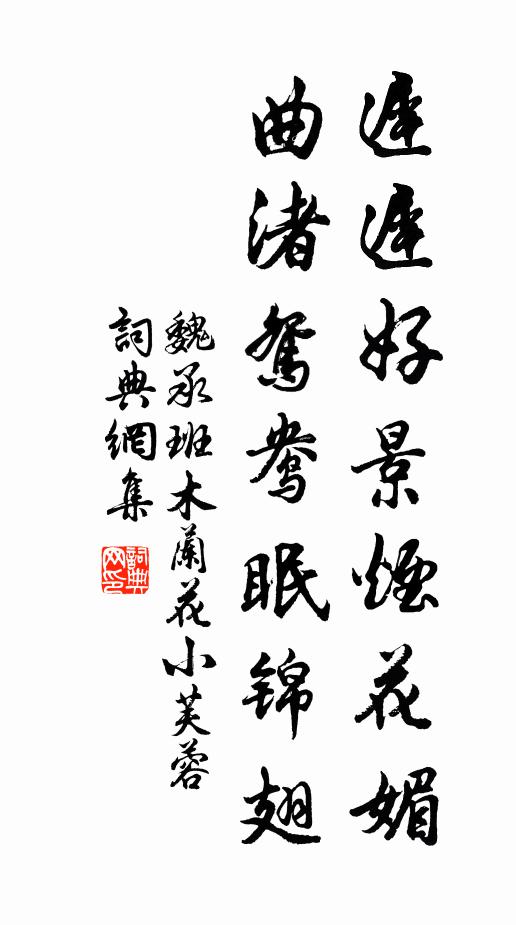 遲遲好景煙花媚
曲渚鴛鴦眠錦翅
魏承班木蘭花小芙蓉
詞典網集
詞典网印